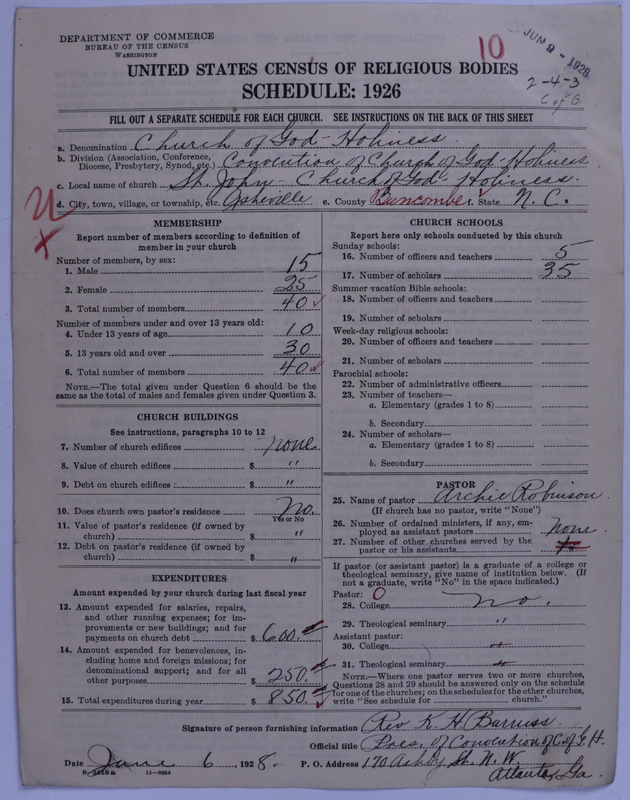 DEPARTMENT OF COMMERCE
BUREAU OF THE CENSUS
WASHINGTON
10
JUN 9 - 1928
2-4-3
C of G
UNITED STATES CENSUS OF RELIGIOUS BODIES
SCHEDULE: 1926
FILL OUT A SEPARATE SCHEDULE FOR EACH CHURCH. SEE INSTRUCTIONS ON THE BACK OF THIS SHEET
a. Denomination Church of God - Holiness
b. Division (Association, Conference, Diocese, Presbytery, Synod, etc.) Convocution of Church of God - Holiness
c. Local name of church St. John Church of God - Holiness.
d. City, town, village, or township, etc. Asheville e. County Buncombe f. State N. C.
MEMBERSHIP
Report number of members according to definition of
member in your church
Number of members, by sex:
1. Male 15
2. Female 25
3. Total number of members 40
Number of members under and over 13 years old:
4. Under 13 years of age 10
5. 13 years old and over 30
6. Total number of members 40
NOTE.—The total given under Question 6 should be the
same as the total of males and females given under Question 3.
CHURCH BUILDINGS
See instructions, paragraphs 10 to 12
7. Number of church edifices none
8. Value of church edifices $ "
9. Debt on church edifices $ "
10. Does church own pastor's residence No.
Yes or No
11. Value of pastor's residence (if owned by
church) $ "
12. Debt on pastor's residence (if owned by
church) $ "
EXPENDITURES
Amount expended by your church during last fiscal year
13. Amount expended for salaries, repairs,
and other running expenses; for im-
provements or new buildings; and for
payments on church debt $ 600.
14. Amount expended for benevolences, in-
cluding home and foreign missions; for
denominational support; and for all
other purposes $ 250.
15. Total expenditures during year $ 850.
CHURCH SCHOOLS
Report here only schools conducted by this church
Sunday schools:
16. Number of officers and teachers 5
17. Number of scholars 35
Summer vacation Bible schools:
18. Number of officers and teachers
19. Number of scholars
Week-day religious schools:
20. Number of officers and teachers
21. Number of scholars
Parochial schools:
22. Number of administrative officers
23. Number of teachers—
a. Elementary (grades 1 to 8)
b. Secondary
24. Number of scholars—
a. Elementary (grades 1 to 8)
b. Secondary
PASTOR
25. Name of pastor Archie Robinson.
(If church has no pastor, write "None")
26. Number of ordained ministers, if any, em-
ployed as assistant pastors none
27. Number of other churches served by the
pastor or his assistants
If pastor (or assistant pastor) is a graduate of a college or
theological seminary, give name of institution below. (If
not a graduate, write "No" in the space indicated.)
Pastor: 0
28. College no.
29. Theological seminary "
Assistant pastor:
30. College "
31. Theological seminary "
NOTE.—Where one pastor serves two or more churches,
Questions 28 and 29 should be answered only on the schedule
for one of the churches; on the schedules for the other churches,
write "See schedule for church."
Signature of person furnishing information Rev. K. H. Burruss.
Official title Pres. of Convocution of C. of G. H.
Date June 6, 1928. P. O. Address 170 Ashby St. N. W.
Atlanta, Ga.
11-9054